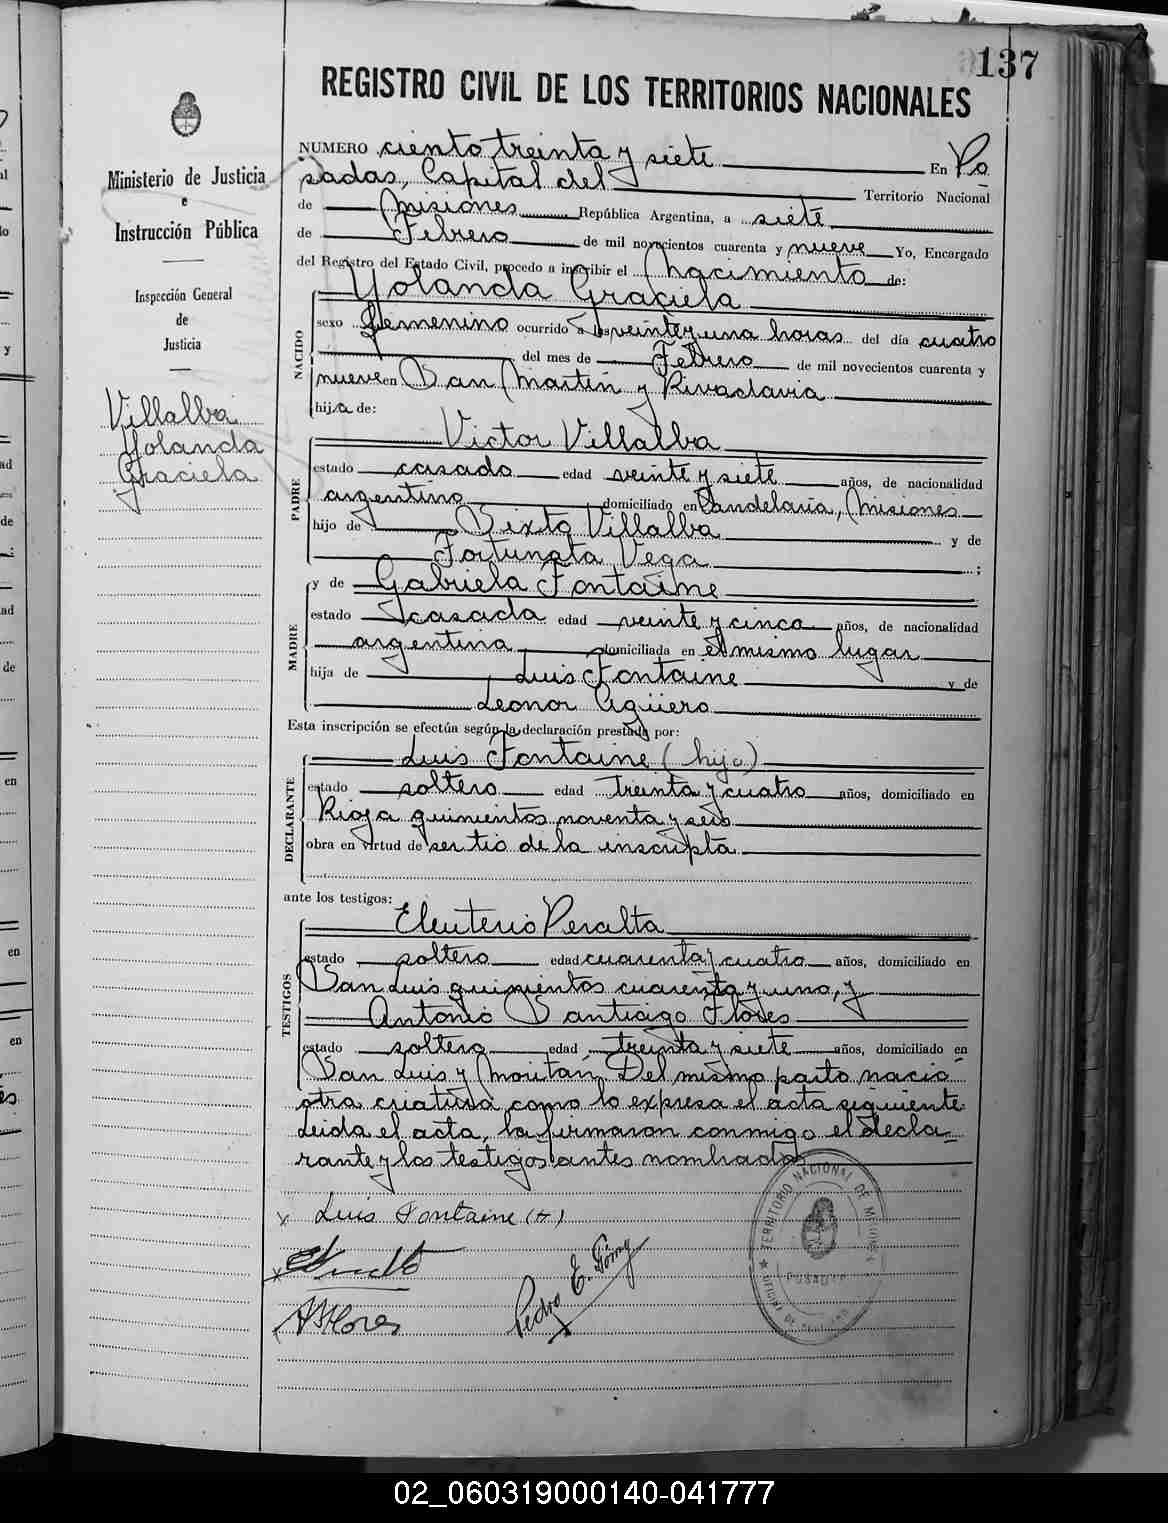 137
REGISTRO CIVIL DE LOS TERRITORIOS NACIONALES
Ministerio de Justicia
e
Instrucción Pública
Inspección General
de
Justicia
Villalba
Yolanda
Graciela
NUMERO ciento treinta y siete En Po
sadas, Capital del Territorio Nacional
de Misiones República Argentina, a siete
de Febrero de mil novecientos cuarenta y nueve Yo, Encargado
del Registro del Estado Civil, procedo a inscribir el Nacimiento de:
NACIDO
Yolanda Graciela
sexo femenino ocurrido a las veintiyuna horas del día cuatro
del mes de Febrero de mil novecientos cuarenta y
nueve en San Martín y Rivadavia
hija de:
PADRE
Victor Villalba
estado casado edad veinte y siete años, de nacionalidad
argentino domiciliado en Candelaria, Misiones
hijo de Sixto Villalba y de
Fortunata Vega ;
MADRE
y de Gabriela Fontaine
estado casada edad veinte y cinco años, de nacionalidad
argentina domiciliada en el mismo lugar
hija de Luis Fontaine y de
Leonor Agüero
Esta inscripción se efectúa según la declaración prestada por:
DECLARANTE
Luis Fontaine (hijo)
estado soltero edad treinta y cuatro años, domiciliado en
Rioja quinientos noventa y seis
obra en virtud de ser tio de la inscripta
ante los testigos:
TESTIGOS
Eleuterio Peralta
estado soltero edad cuarenta y cuatro años, domiciliado en
San Luis quinientos cuarenta y uno, y
Antonio Santiago Flores
estado soltero edad treinta y siete años, domiciliado en
San Luis y Moritán. Del mismo parto nació
otra criatura como lo expresa el acta siguiente.
Leida el acta, la firmaron conmigo el decla-
rante y los testigos antes nombrados
x Luis Fontaine (h)
Pedro E. Gómez
A S Flores
TERRITORIO NACIONAL DE MISIONES
POSADAS
02_060319000140-041777